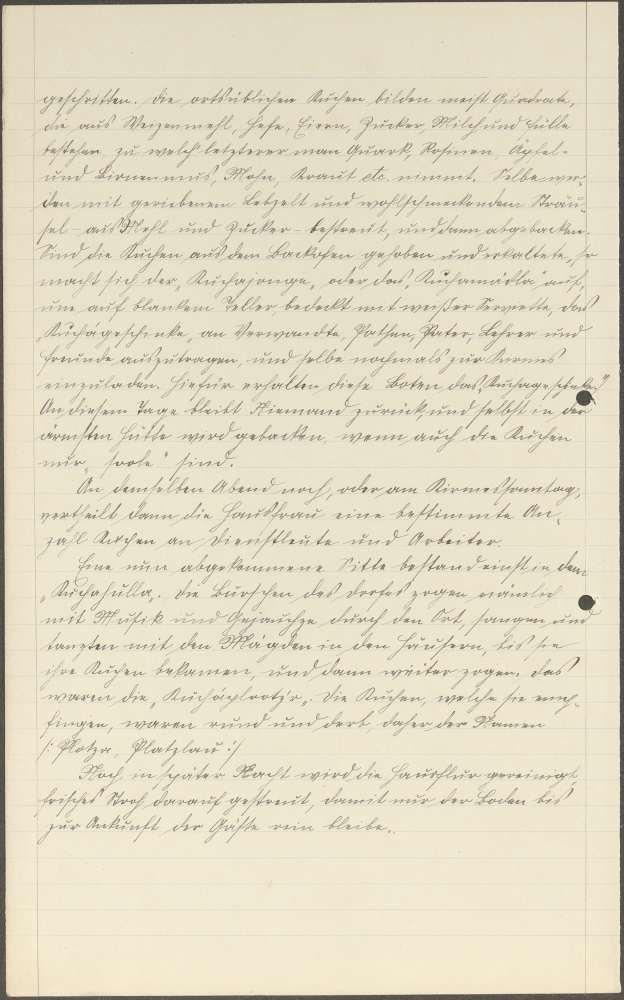 geschritten. Die ortsüblichen Kuchen bilden meist Quadrate,
die aus Weizenmehl, Hefe, Eiern, Zucker, Milch und Fülle
bestehen, zu welch' letzterer man Quark, Rosinen, Äpfel-
und Birnenmus, Mohn, Kraut etc. nimmt. Selbe wer-
den mit geriebenem Lebzelt und wohlschmeckendem Sträu-
sel - aus Mehl und Zucker - bestreut, und dann abgebacken.
Sind die Kuchen aus dem Backofen gehoben und erkaltete, so
macht sich der „Kuchajonge„ oder das „Kuchamadla" auf,
um auf blankem Teller, bedeckt mit weißer Serviette, das
„Kuchageschinke„ an Verwandte, Pathen, Pater, Lehrer und
Freunde auszutragen, und selbe nochmals zur Kirmes
einzuladen. Hiefür erhalten diese Boten das „Kuchageschinke"
An diesem Tage bleibt Niemand zurück, und selbst in der
ärmsten Hütte wird gebacken, wenn auch die Kuchen
nur „ sind.
An demselben Abend noch, oder am Kirmessonntag,
vertheilt dann die Hausfrau eine bestimmte An-
zahl Kuchen an Dienstleute und Arbeiter.
Eine nun abgekommene Sitte bestand einst in dem
„Kuchahulla„. Die Burschen des Dorfes zogen nämlich
mit Musik und Gejauchze durch den Ort, sangen und
tanzten mit den Mägden in den Häusern, bis sie
ihre Kuchen bekamen, und dann weiter zogen. Das
waren die „Kuchaplootzr„. Die Kuchen, welche sie emp-
fingen, waren rund und derb, daher der Namen
/: Plotza, Platzlan :/
Noch in später Nacht wird die Hausflur gereinigt,
frisches Stroh darauf gestreut, damit nur der Boden bis
zur Ankunft der Gäste rein bleibe.